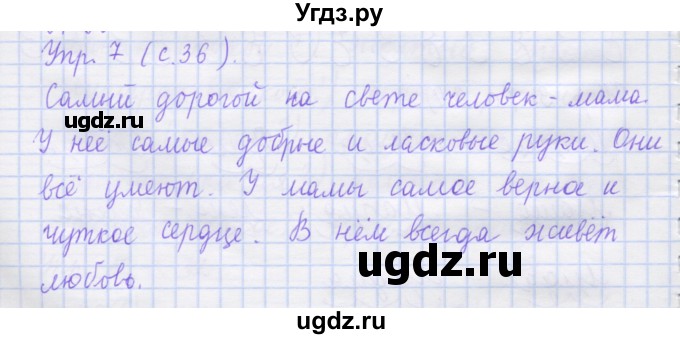 Угдз.ру
Упр. 7 (с.36).
Самый дорогой на свете человек - мама.
ugdz.ru
У неё самые добрые и ласковые руки. Они
всё умеют. У мамы самое верное и
чуткое сердце. В нём всегда живёт
ugdz.ru
любовь.
ugdz.ru